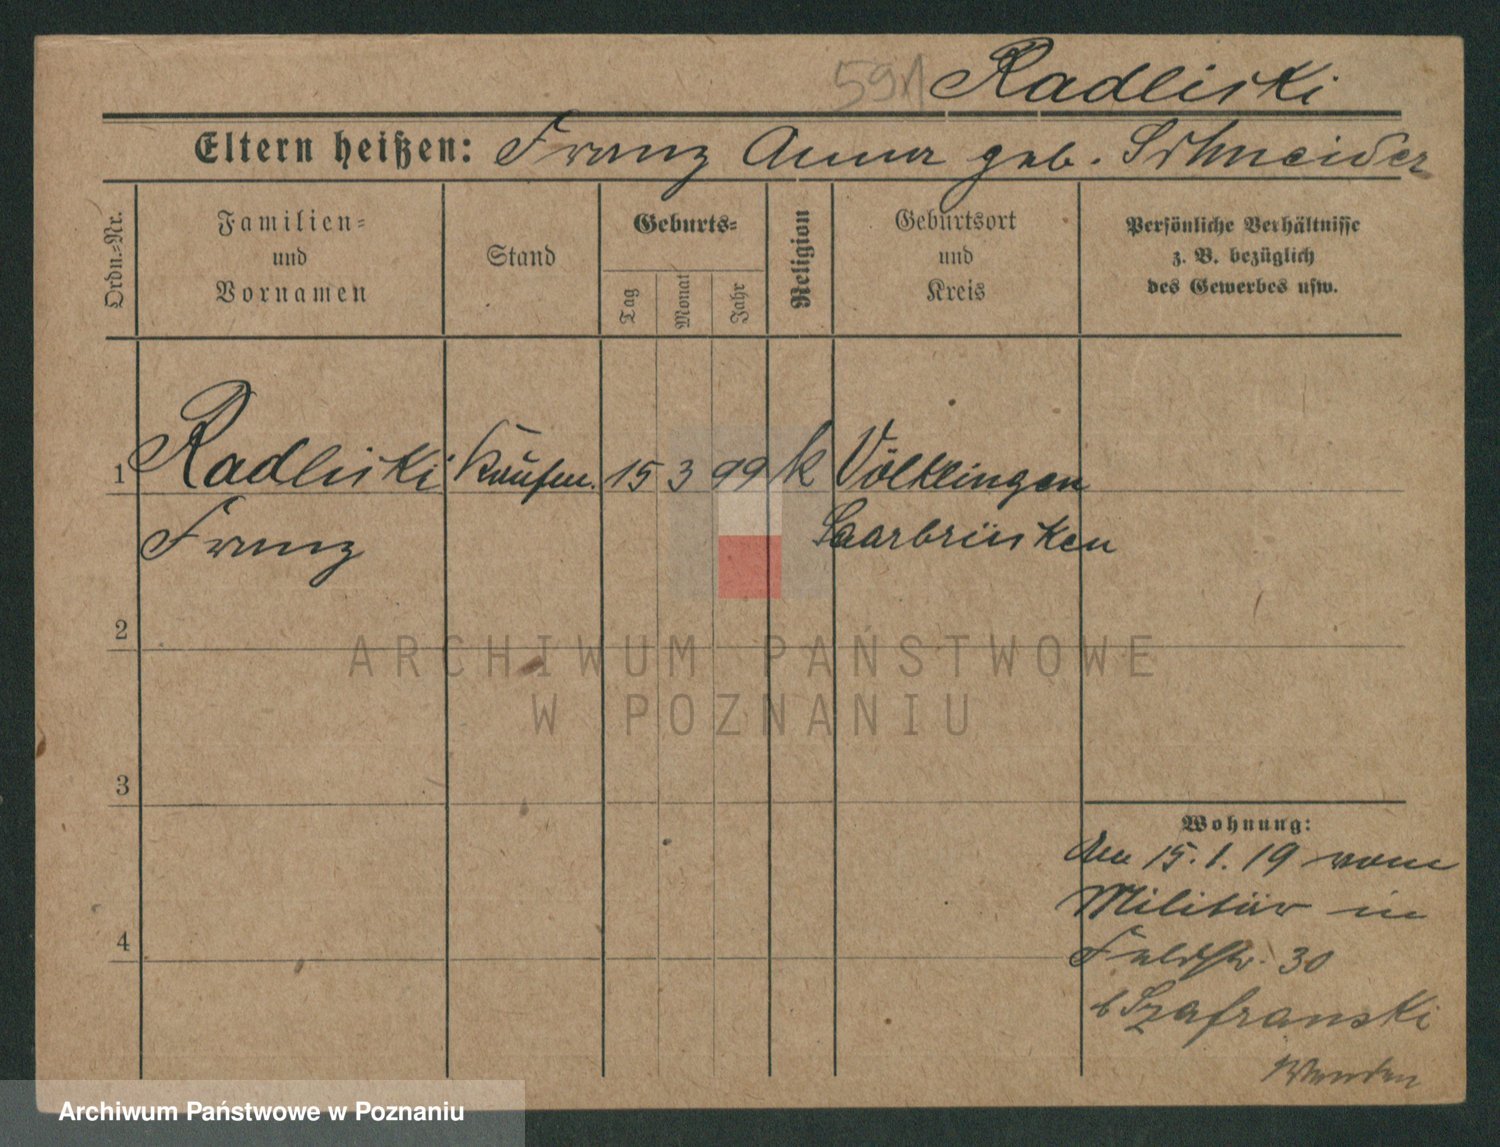 591 Radliski
Eltern heißen: Franz Anna geb. Schneider
Ordn.-Nr.
Familien-
und
Vornamen
Stand
Geburts-
Tag
Monat
Jahr
Religion
Geburtsort
und
Kreis
Persönliche Verhältnisse
z. B. bezüglich
des Gewerbes usw.
1 Radliski Kaufm. 15 3 99 k Völklingen
Franz Saarbrücken
2
ARCHIWUM PAŃSTWOWE
W POZNANIU
3
Wohnung:
den 15.1.19 vom
Militär in
4
Feldstr. 30
b Szafranski
Archiwum Państwowe w Poznaniu